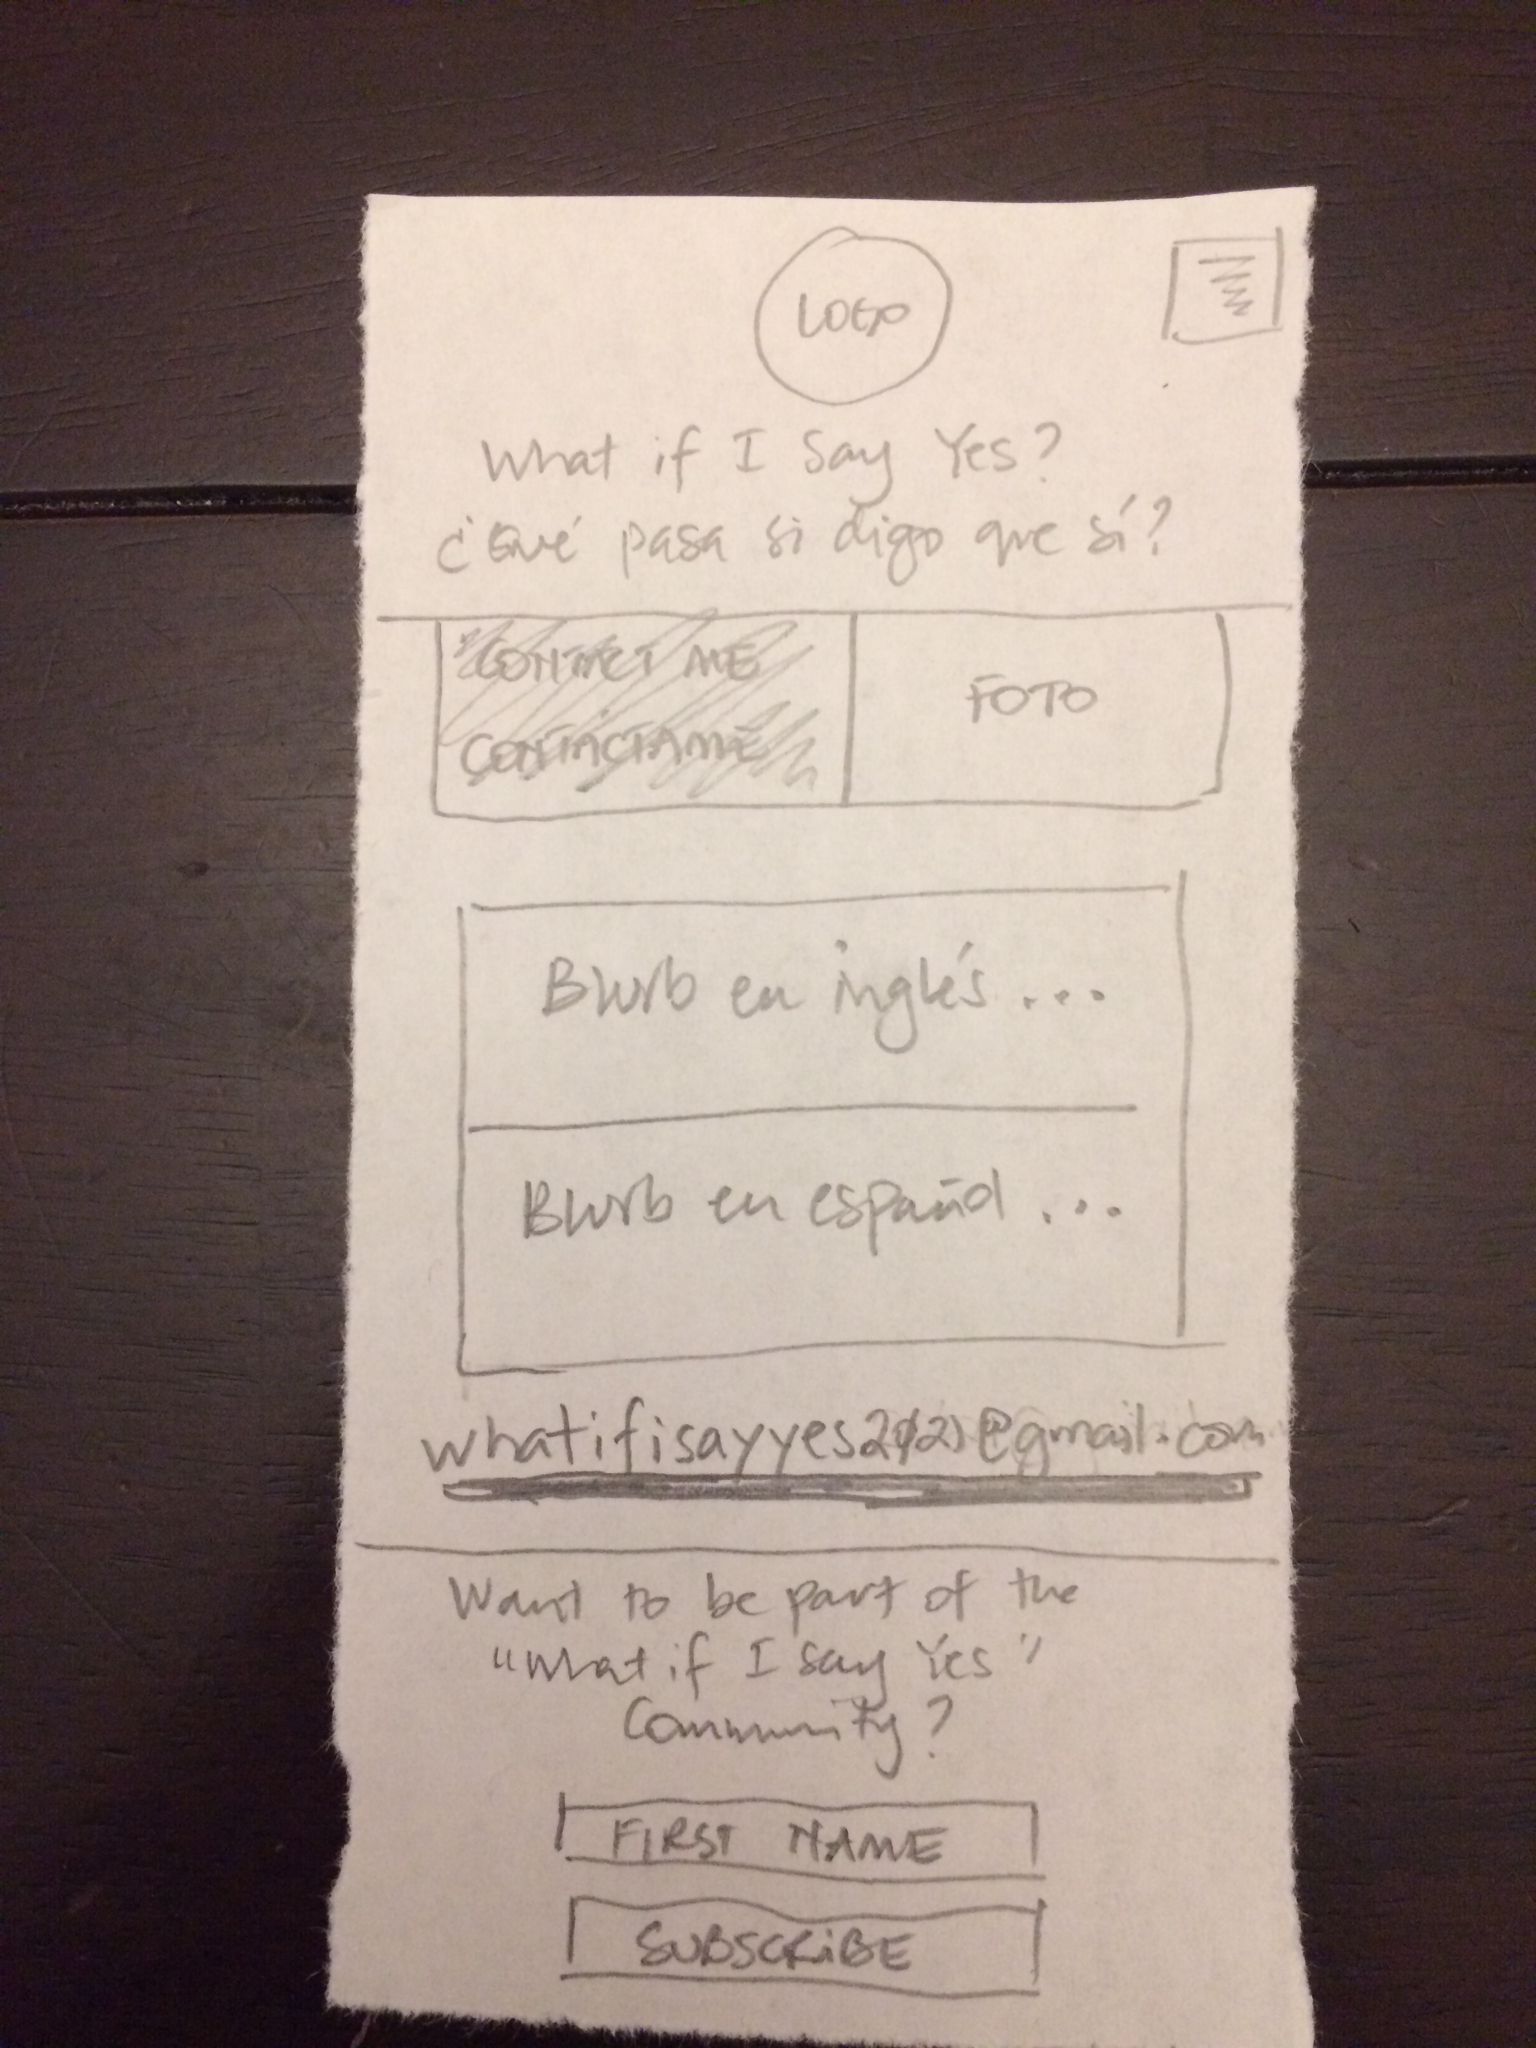 LOGO
What if I Say Yes?
¿Qué pasa si digo que sí?
CONTACT ME
CONTÁCTAME
FOTO
Blurb en inglés ...
Blurb en español ...
whatifisayyes2021@gmail.com
Want to be part of the
"What if I say Yes"
Community?
FIRST NAME
SUBSCRIBE